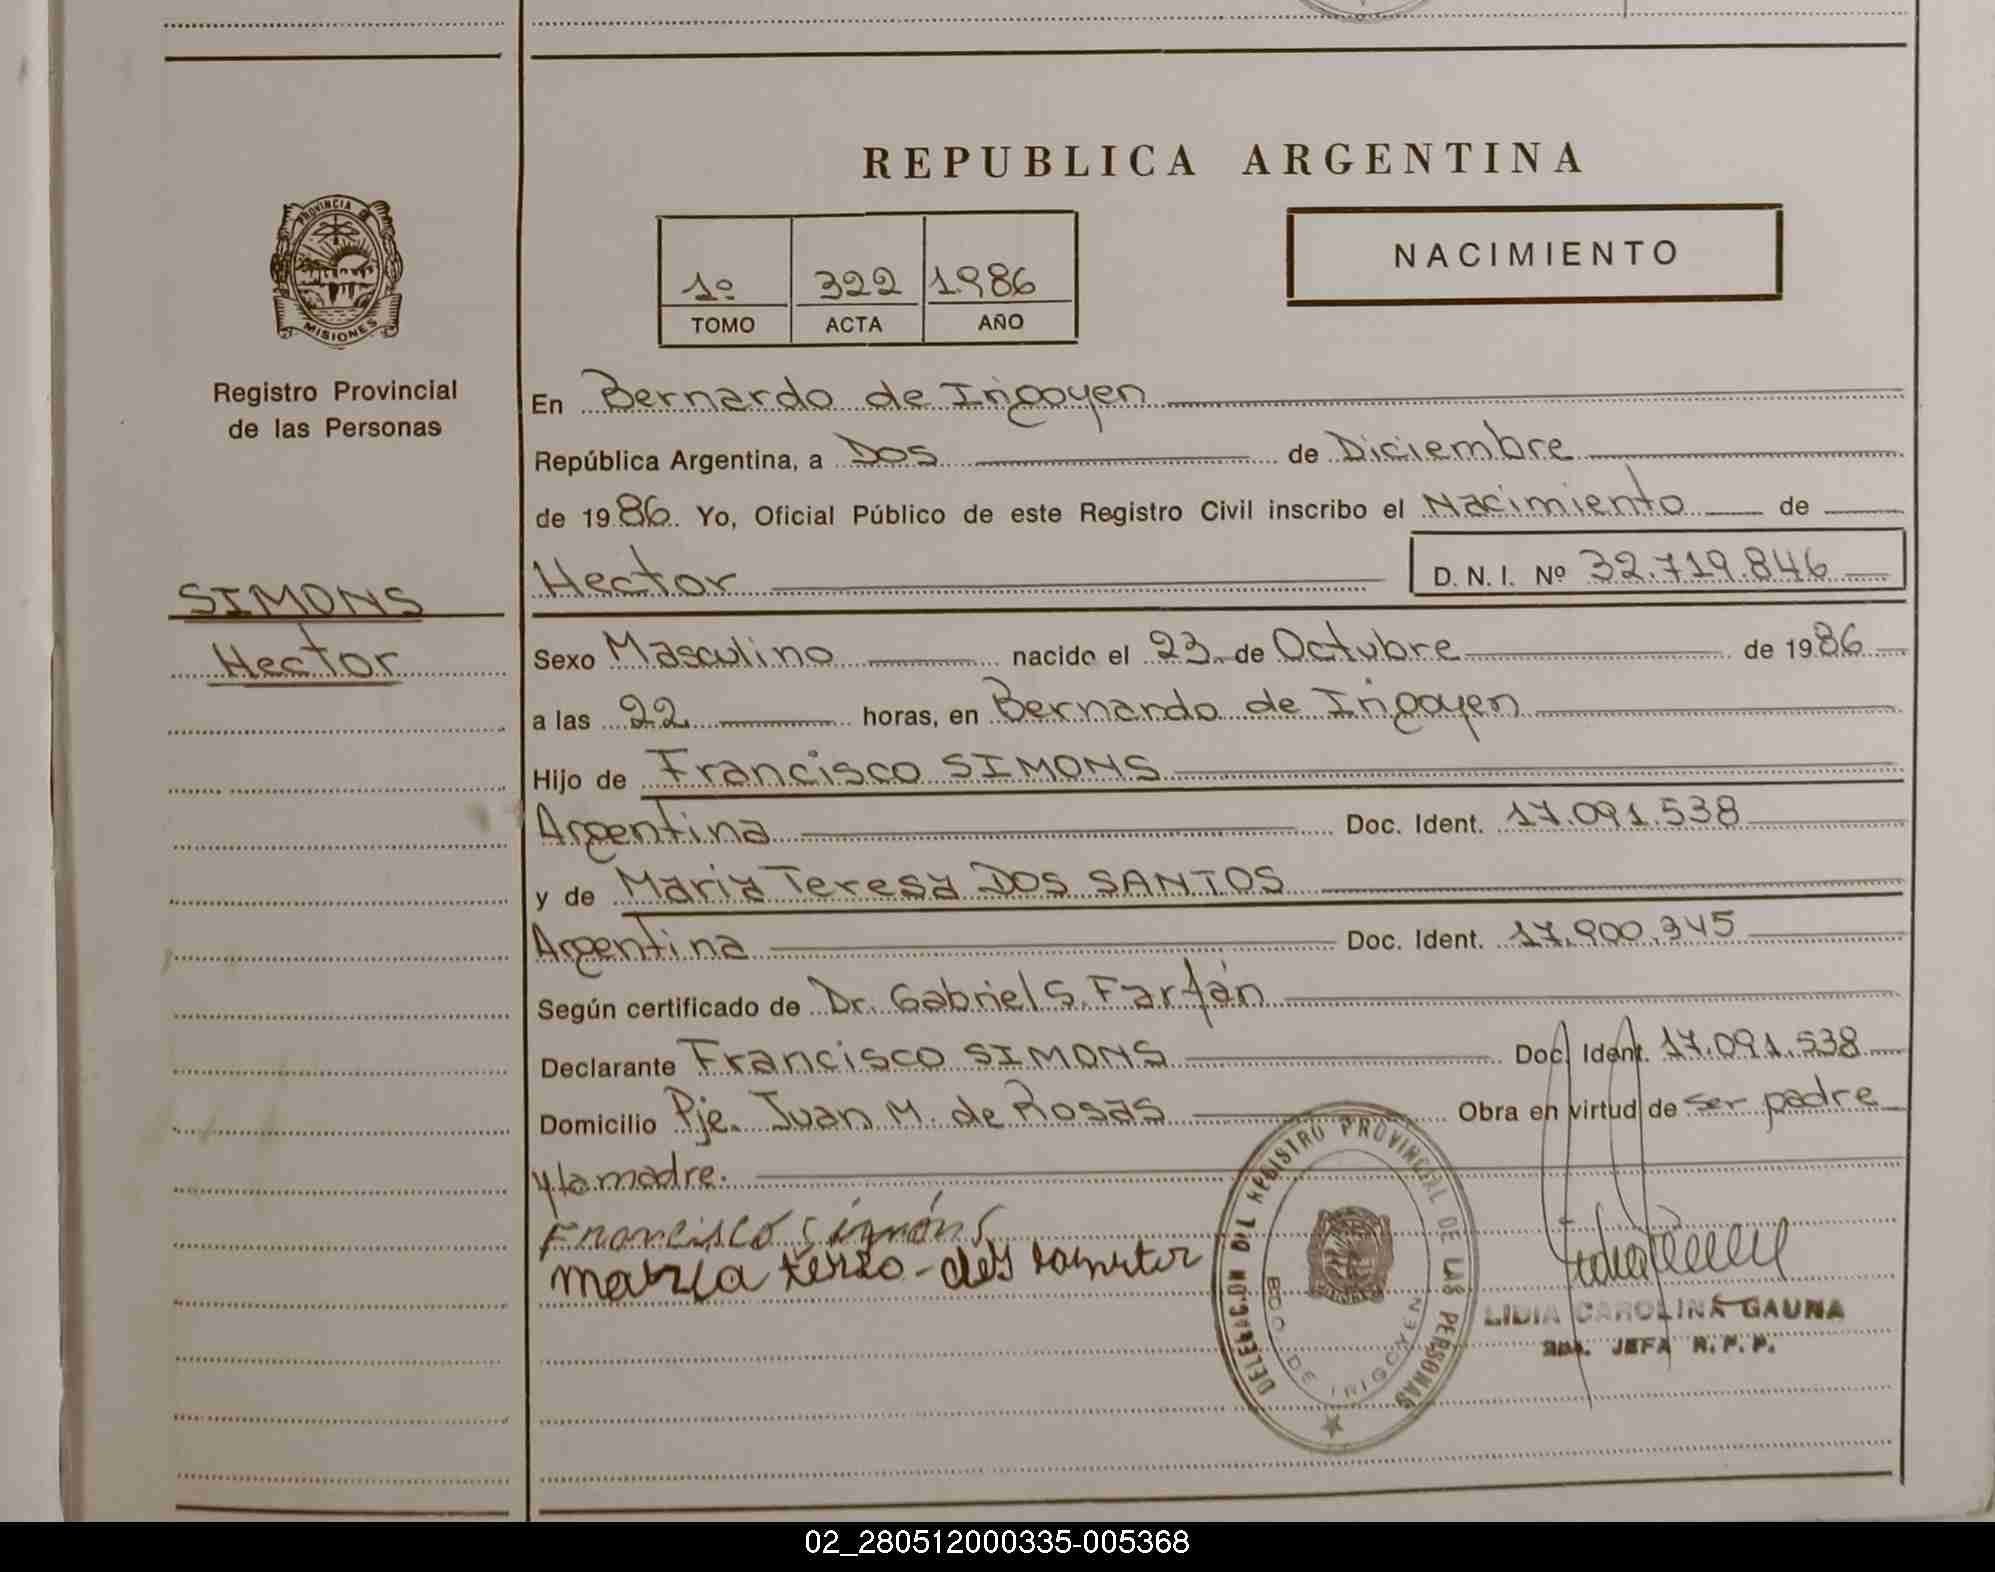 REPUBLICA ARGENTINA
PROVINCIA DE
MISIONES
Registro Provincial
de las Personas
SIMONS
Hector
1º 322 1986
TOMO ACTA AÑO
NACIMIENTO
En Bernardo de Irigoyen
República Argentina, a Dos de Diciembre
de 1986. Yo, Oficial Público de este Registro Civil inscribo el Nacimiento de
Hector D. N. I. Nº 32.719.846
Sexo Masculino nacido el 23 de Octubre de 1986
a las 22 horas, en Bernardo de Irigoyen
Hijo de Francisco SIMONS
Argentina Doc. Ident. 17.091.538
y de Maria Teresa DOS SANTOS
Argentina Doc. Ident. 17.900.345
Según certificado de Dr. Gabriel S. Farfán
Declarante Francisco SIMONS Doc. Ident. 17.091.538
Domicilio Pje. Juan M. de Rosas Obra en virtud de ser padre
y la madre.
Francisco Simóns
DELEGACION DEL REGISTRO PROVINCIAL DE LAS PERSONAS
BDO DE IRIGOYEN
LIDIA CAROLINA GAUNA
JEFA R.P.P.
02_280512000335-005368